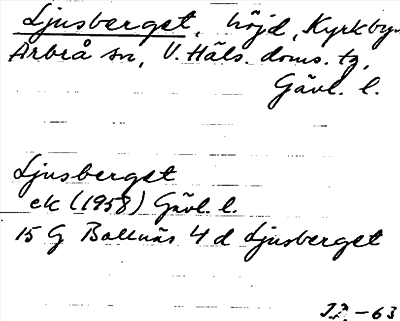 Ljusberget, höjd, Kyrkby
Arbrå sn, V. Häls. doms. tg,
Gävl. l.
Ljusberget
ek (1958) Gävl. l.
15 G Bollnäs 4 d Ljusberget
-63